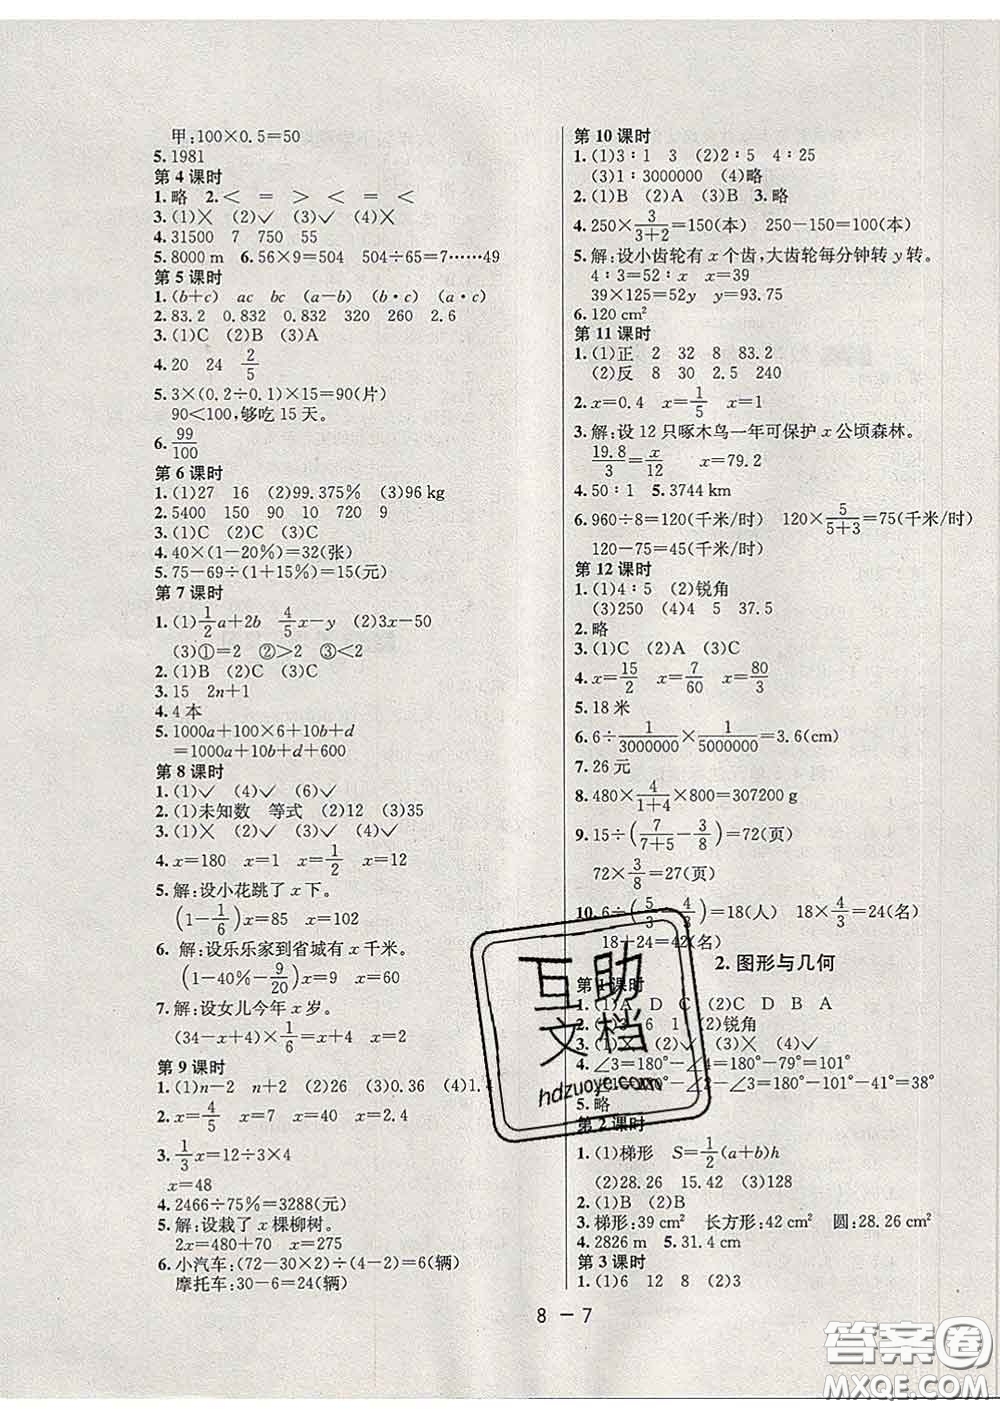 甲:100×0.5=50
5.1981
第4课时
1.略 2.< = > < = <
3.(1)× (2)✓ (3)✓ (4)×
4.31500 7 750 55
5.8000 m 6.56×9=504 504÷65=7……49
第5课时
1.(b+c) ac bc (a−b) (b·c) (b+c)
2.83.2 0.832 0.832 320 260 2.6
3.(1)C (2)B (3)A
4.20 24 2/5
5.3×(0.2÷0.1)×15=90(片)
90<100,够吃15天。
6.99/100
第6课时
1.(1)27 16 (2)99.375% (3)96 kg
2.5400 150 90 10 720 9
3.(1)C (2)C (3)C
4.40×(1−20%)=32(张)
5.75−69÷(1+15%)=15(元)
第7课时
1.(1)1/2a+2b 4/5x−y (2)3x−50
(3)①=2 ②>2 ③<2
2.(1)B (2)C (3)C
3.15 2n+1
4.4本
5.1000a+100×6+10b+d
=1000a+10b+d+600
第8课时
1.(1)✓ (4)✓ (6)✓
2.(1)未知数 等式 (2)12 (3)35
3.(1)× (2)✓ (3)✓ (4)✓
4.x=180 x=1 x=1/2 x=12
5.解:设小花跳了x下。
(1−1/6)x=85 x=102
6.解:设乐乐家到省城有x千米。
(1−40%−9/20)x=9 x=60
7.解:设女儿今年x岁。
(34−x+4)×1/6=x+4 x=2
第9课时
1.(1)n−2 n+2 (2)26 (3)0.35 (4)1.
2.x=4/5 x=7 x=40 x=2.4
3.1/3x=12÷3×4
x=48
4.2466÷75%=3288(元)
5.解:设栽了x棵柳树。
2x=480+70 x=275
6.小汽车:(72−30×2)÷(4−2)=6(辆)
摩托车:30−6=24(辆)
第10课时
1.(1)3∶1 3 (2)2∶5 4∶25
(3)1∶3000000 (4)略
2.(1)B (2)A (3)B 3.略
4.250×3/3+2=150(本) 250−150=100(本)
5.解:设小齿轮有x个齿,大齿轮每分钟转y转。
4∶3=52∶x x=39
39×125=52y y=93.75
6.120 cm²
第11课时
1.(1)正 2 32 8 83.2
(2)反 8 30 2.5 240
2.x=0.4 x=1/5 x=1
3.解:设12只啄木鸟一年可保护x公顷森林。
19.8/3=x/12 x=79.2
4.50∶1 5.3744 km
6.960÷8=120(千米/时) 120×5/5+3=75(千米/时)
120−75=45(千米/时)
第12课时
1.(1)4∶5 (2)锐角
(3)250 (4)4 5 37.5
2.略
3.(1)C (2)A (3)C
4.x=15/2 x=7/60 x=80/3
5.18米
6.6÷1/3000000×1/5000000=3.6(cm)
7.26元
8.480×4/1+4×800=307200 g
9.15÷(7/7+5−3/8)=72(页)
72×3/8=27(页)
10.6÷(5/3−4/3)=18(人) 18×4/3=24(名)
18+24=42(名)
2.图形与几何
第1课时
1.(1)A D C (2)C D B A
2.(1) 6 1 (2)锐角
3.(1)× (2)✓ (3)✓ (4)✓
4.∠3=180°−∠4=180°−79°=101°
−∠2−∠3=180°−101°−41°=38°
5.略
第2课时
1.(1)梯形 S=1/2(a+b)h
(2)28.26 15.42 (3)128
2.(1)B (2)B
3.梯形:39 cm² 长方形:42 cm² 圆:28.26 cm²
4.2826 m 5.31.4 cm
第3课时
1.(1)6 12 8 (2)3
8－7
互助
文档
hdzuoye.com
答案圈
MXQE.COM